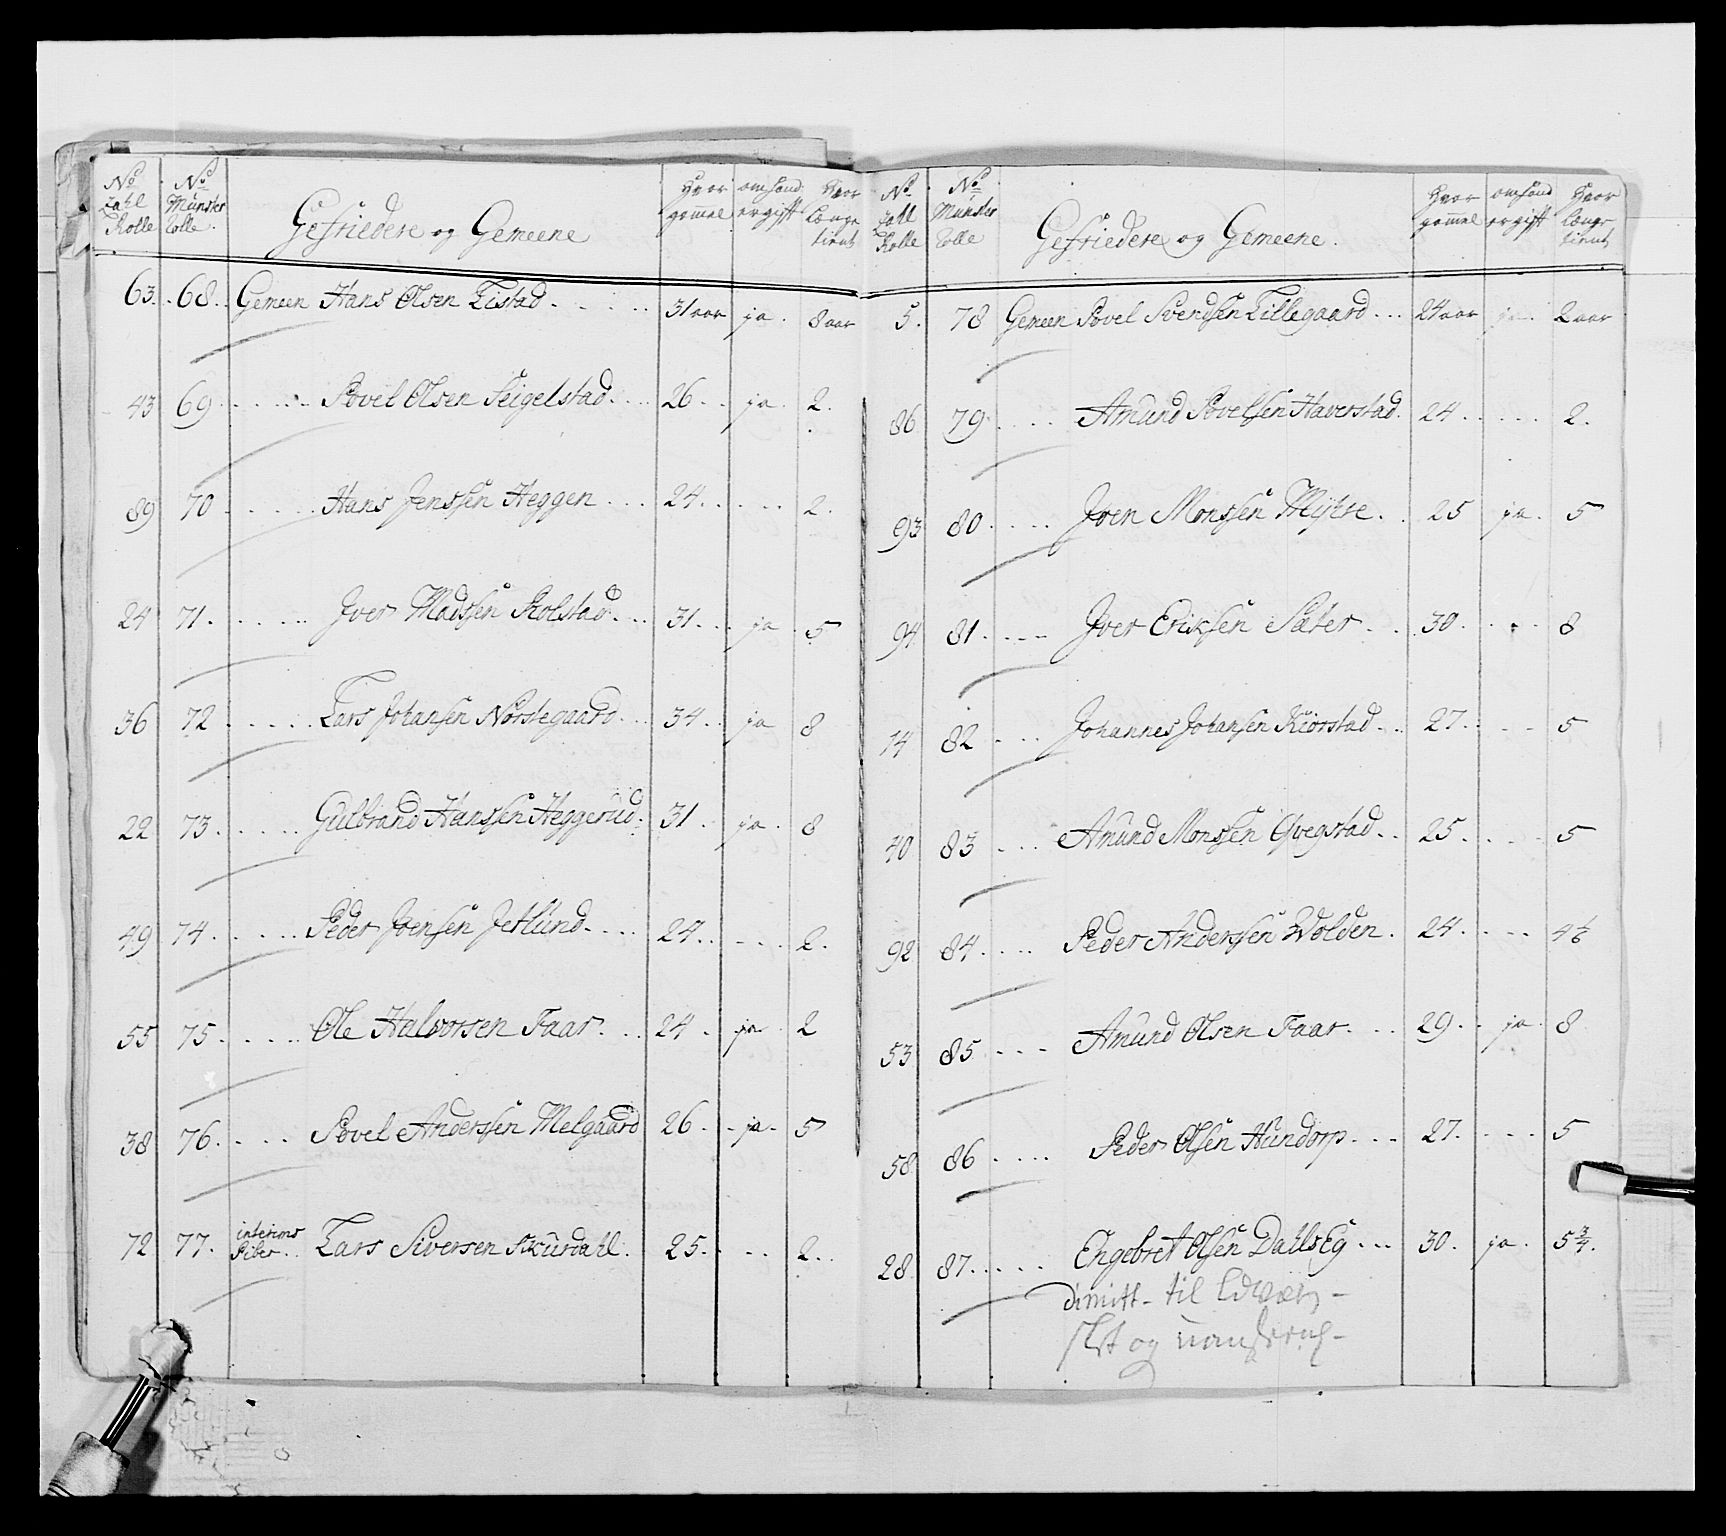 No Zahl Rolle | No Münster Rolle | Gefriedere og Gemeene | Hvor gammel | om hand er gift | Hvor længe tient
63. 68. Gemeen Hans Olsen Listad 31 aar ja. 8 aar
43 69 Povel Olsen Seigelstad 26 ja. 2.
89 70 Hans Jenssen Heggen 24. 2.
24 71. Iver Madssen Kolstad 31. ja 5
36 72 Lars Johansen Norstegaard 34 ja 8
22 73. Gulbrand Hanssen Heggerud 31 ja. 8
49 74. Peder Joensen Jetlund 24. 2.
55 75. Ole Halvorsen Faar 24 ja 2
38 76. Povel Anderssen Melgaard 26 ja 5
72 77. interims Piber Lars Siversen Skurdahl. 25. 2.
No Zahl Rolle | No Münster Rolle | Gefriedere og Gemeene. | Hvor gammel | om hand er gift | Hvor længe tient
5. 78 Gemeen Povel Svendsen Lillegaard 24 aar ja. 2 aar
86 79 Amund Povelsen Haverstad 24 2.
93 80 Joen Monssen Mÿhre 25 ja. 5
94 81. Iver Eriksen Sæter 30. 8
14 82 Johannes Johansen Kiorstad 27. 5
40 83 Amund Monssen Qvegstad 25. 5
92 84. Peder Anderssen Wolden. 24. 4
53 85 Amund Olsen Faar 29 ja. 8
58 86 Peder Olsen Hundorp 27. 5
28 87. Engebret Olsen Dahls Eg 30. ja. 5 3/4.
dimitt. til
og